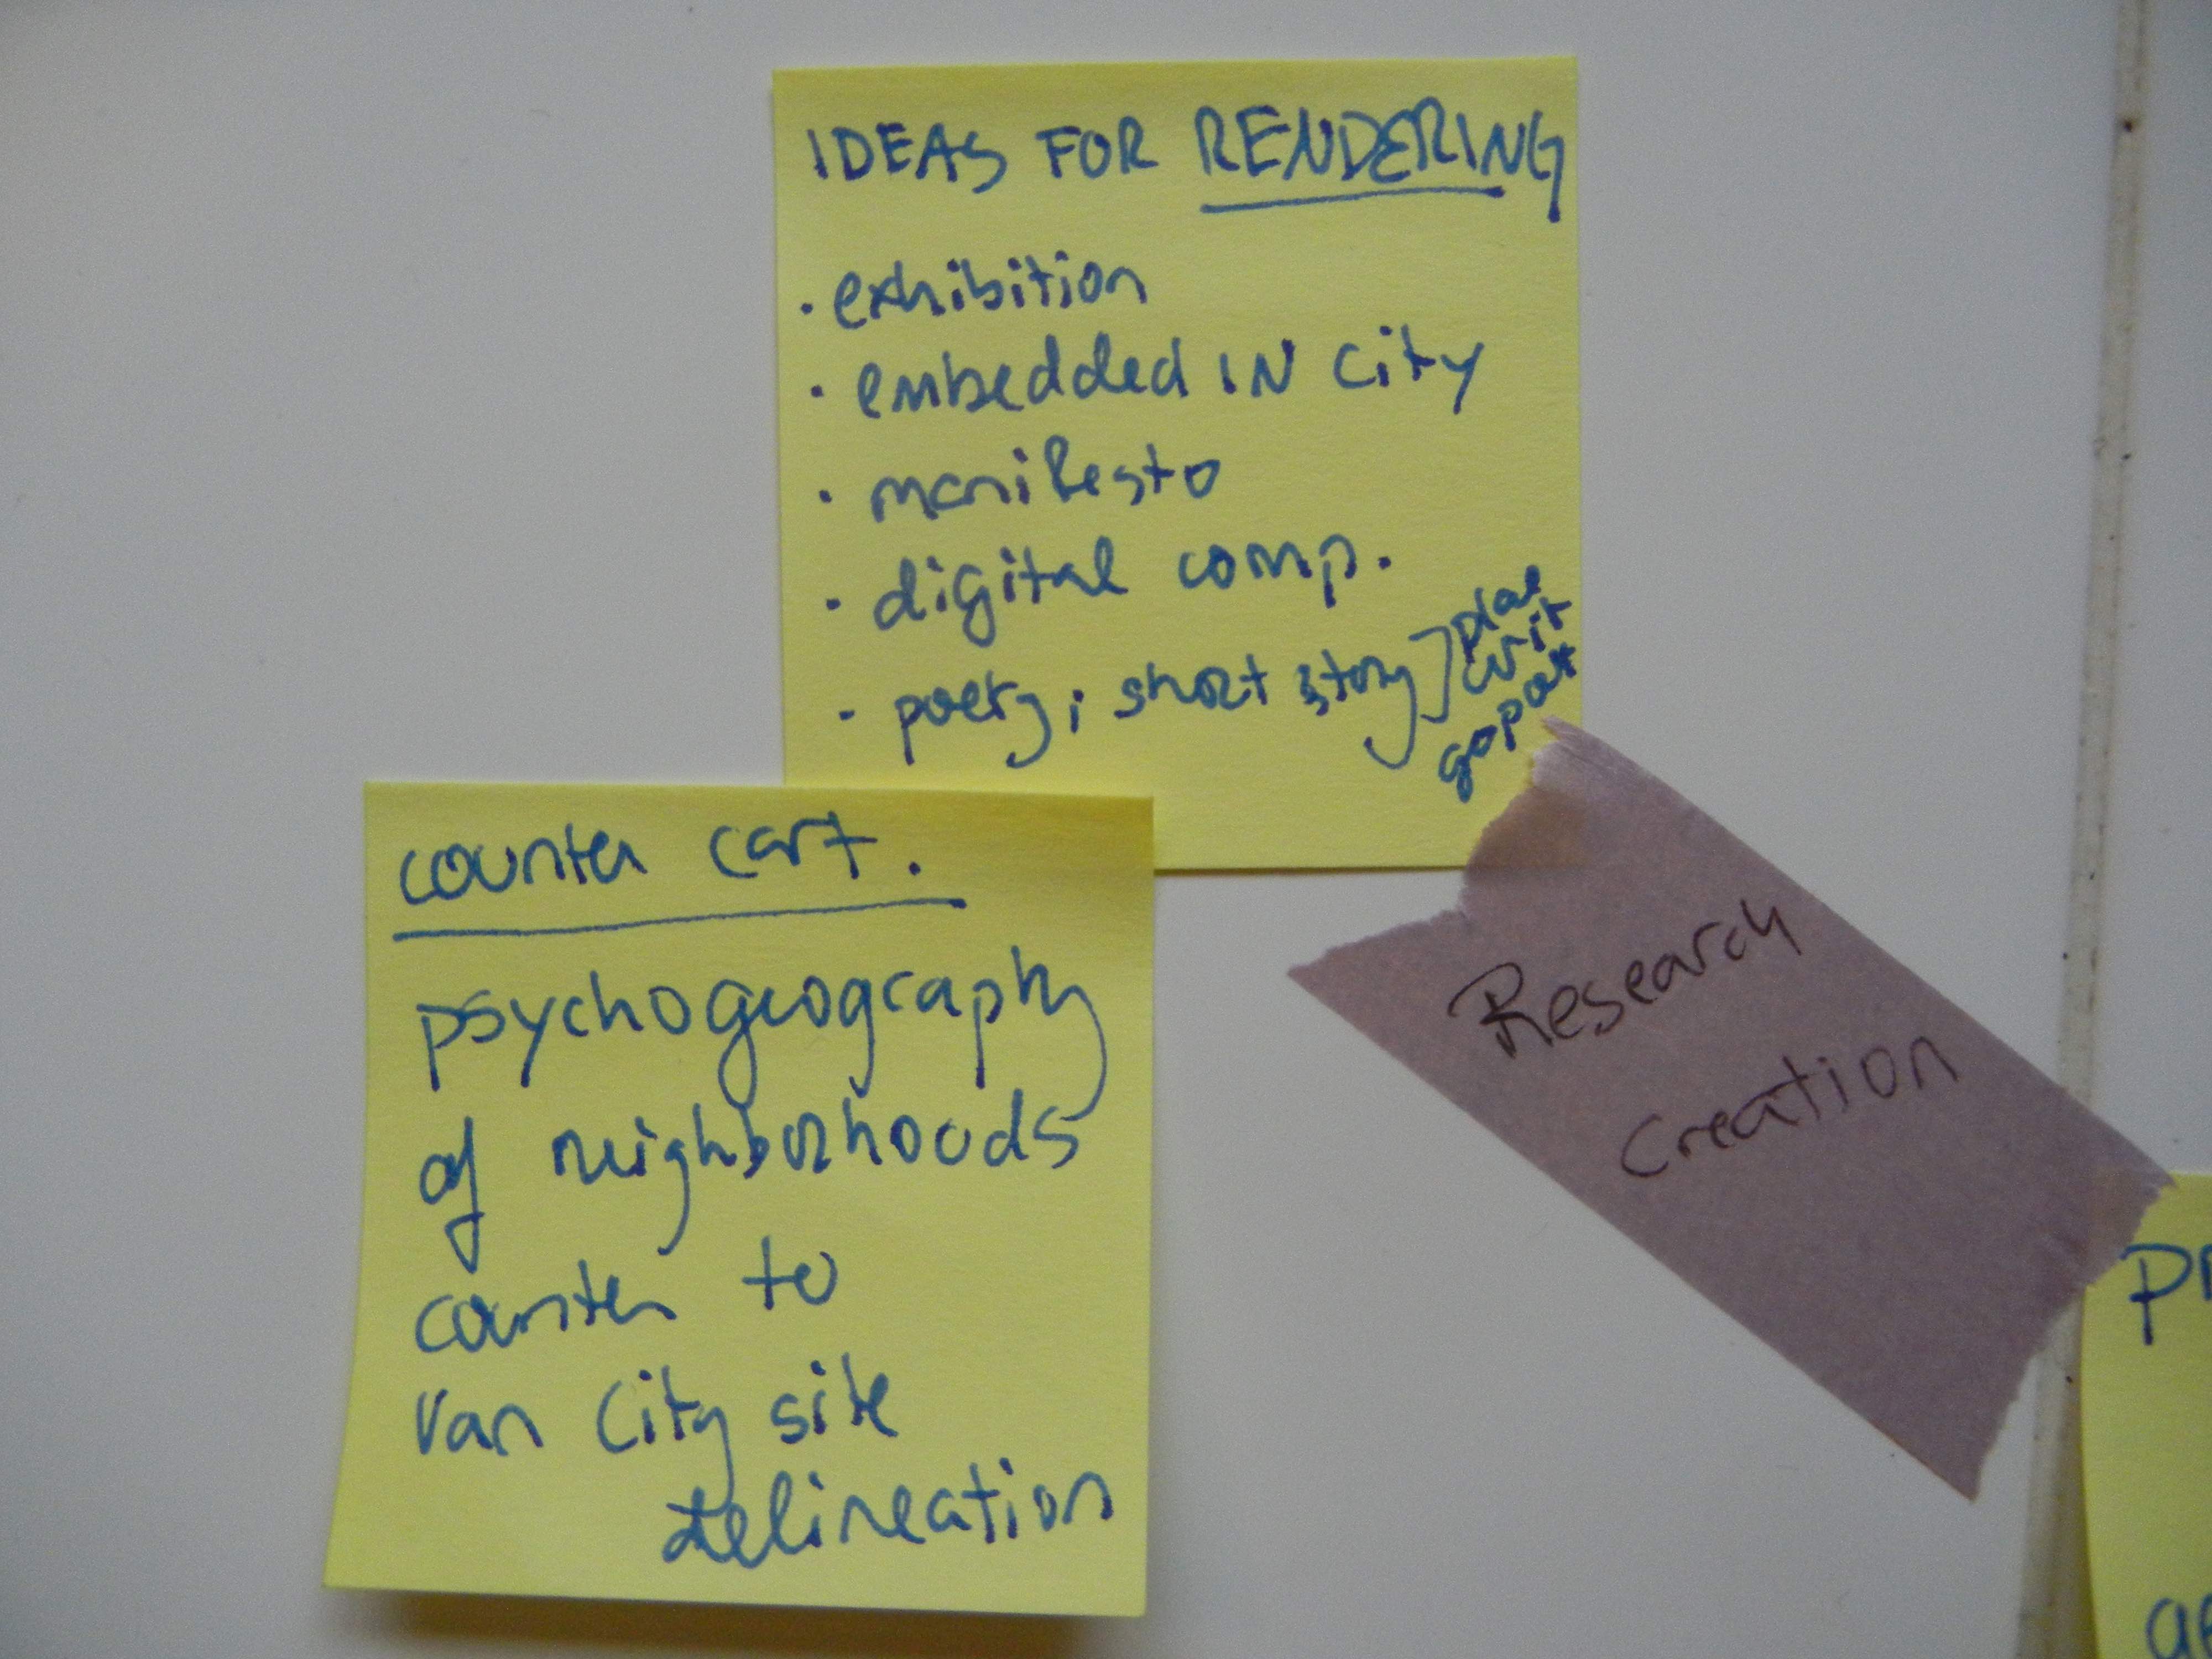 IDEAS FOR RENDERING
· exhibition
· embedded IN City
· manifesto
· digital comp.
· poetry; short story]
counter cart.
psychogeography
of neighborhoods
counter to
Van City site
delineation
Research
Creation